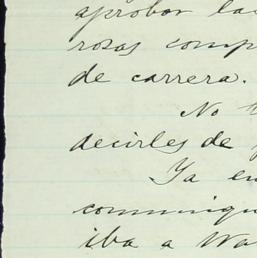 aprobar la
rosas comp
de carrera.
No t
decirles de
Ya en
comuniqu
iba a Wa